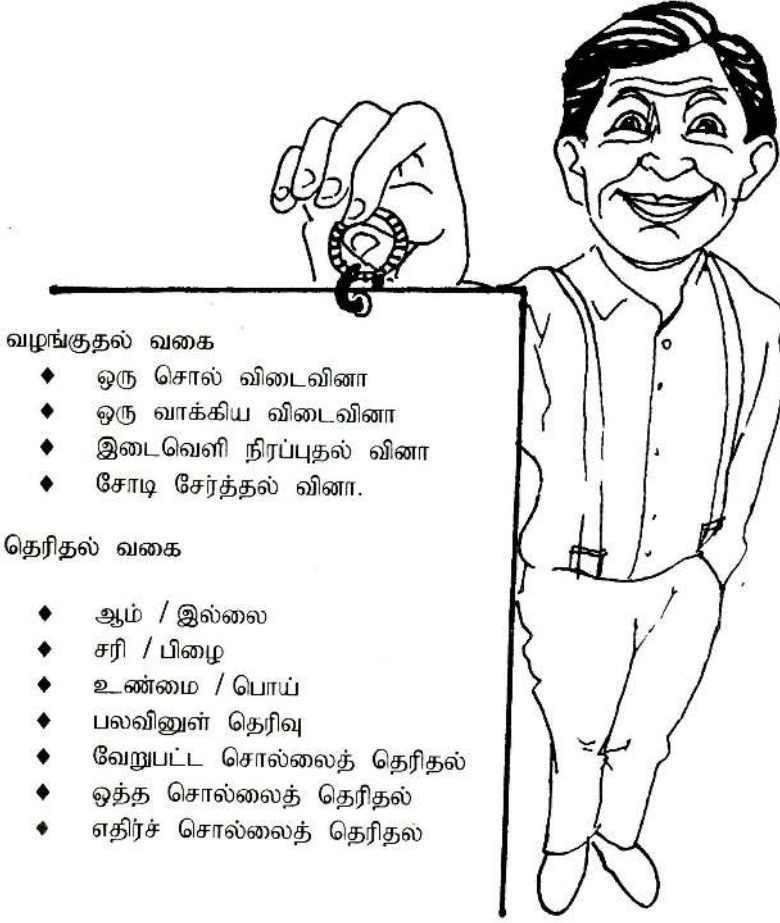 வழங்குதல் வகை
♦ ஒரு சொல் விடைவினா
♦ ஒரு வாக்கிய விடைவினா
♦ இடைவெளி நிரப்புதல் வினா
♦ சோடி சேர்த்தல் வினா.
தெரிதல் வகை
♦ ஆம் / இல்லை
♦ சரி / பிழை
♦ உண்மை / பொய்
♦ பலவினுள் தெரிவு
♦ வேறுபட்ட சொல்லைத் தெரிதல்
♦ ஒத்த சொல்லைத் தெரிதல்
♦ எதிர்ச் சொல்லைத் தெரிதல்